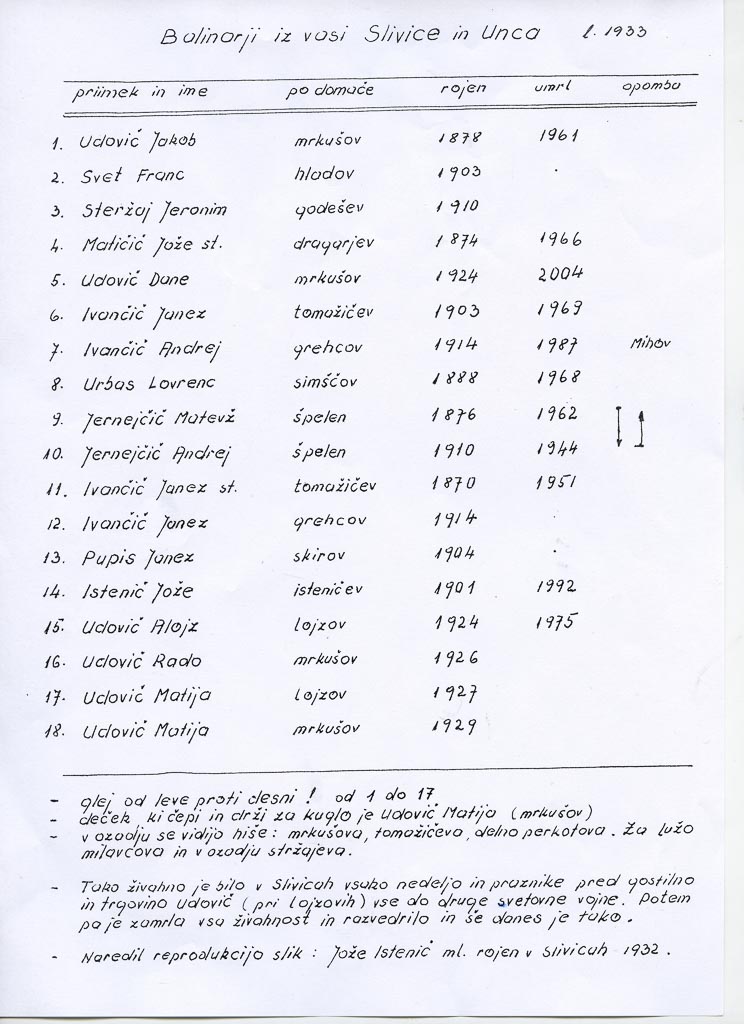 Balinarji iz vasi Slivice in Unca l. 1933
priimek in ime po domače rojen umrl opomba
1. Udovič Jakob mrkušov 1878 1961
2. Svet Franc hladov 1903
3. Steržaj Jeronim godešev 1910
4. Matičič Jože st. dragarjev 1874 1966
5. Udovič Dane mrkušov 1924 2004
6. Ivančič Janez tomažičev 1903 1969
7. Ivančič Andrej grehcov 1914 1987 Mihov
8. Urbas Lovrenc simščov 1888 1968
9. Jernejčič Matevž špelen 1876 1962
10. Jernejčič Andrej špelen 1910 1944
11. Ivančič Janez st. tomažičev 1870 1951
12. Ivančič Janez grehcov 1914
13. Pupis Janez skirov 1904
14. Istenič Jože isteničev 1901 1992
15. Udovič Alojz lojzov 1924 1975
16. Udovič Rado mrkušov 1926
17. Udovič Matija lojzov 1927
18. Udovič Matija mrkušov 1929
- glej od leve proti desni! od 1 do 17
- deček ki čepi in drži za kuglo je Udovič Matija (mrkušov)
- v ozadju se vidijo hiše: mrkušova, tomažičeva, delno perkotova. Za lužo
milavcova in v ozadju stržajeva.
- Tako živahno je bilo v Slivicah vsako nedeljo in praznike pred gostilno
in trgovino Udovič (pri lojzovih) vse do druge svetovne vojne. Potem
pa je zamrla vsa živahnost in razvedrilo in še danes je tako.
- Naredil reprodukcijo slik: Jože Istenič ml. rojen v Slivicah 1932.